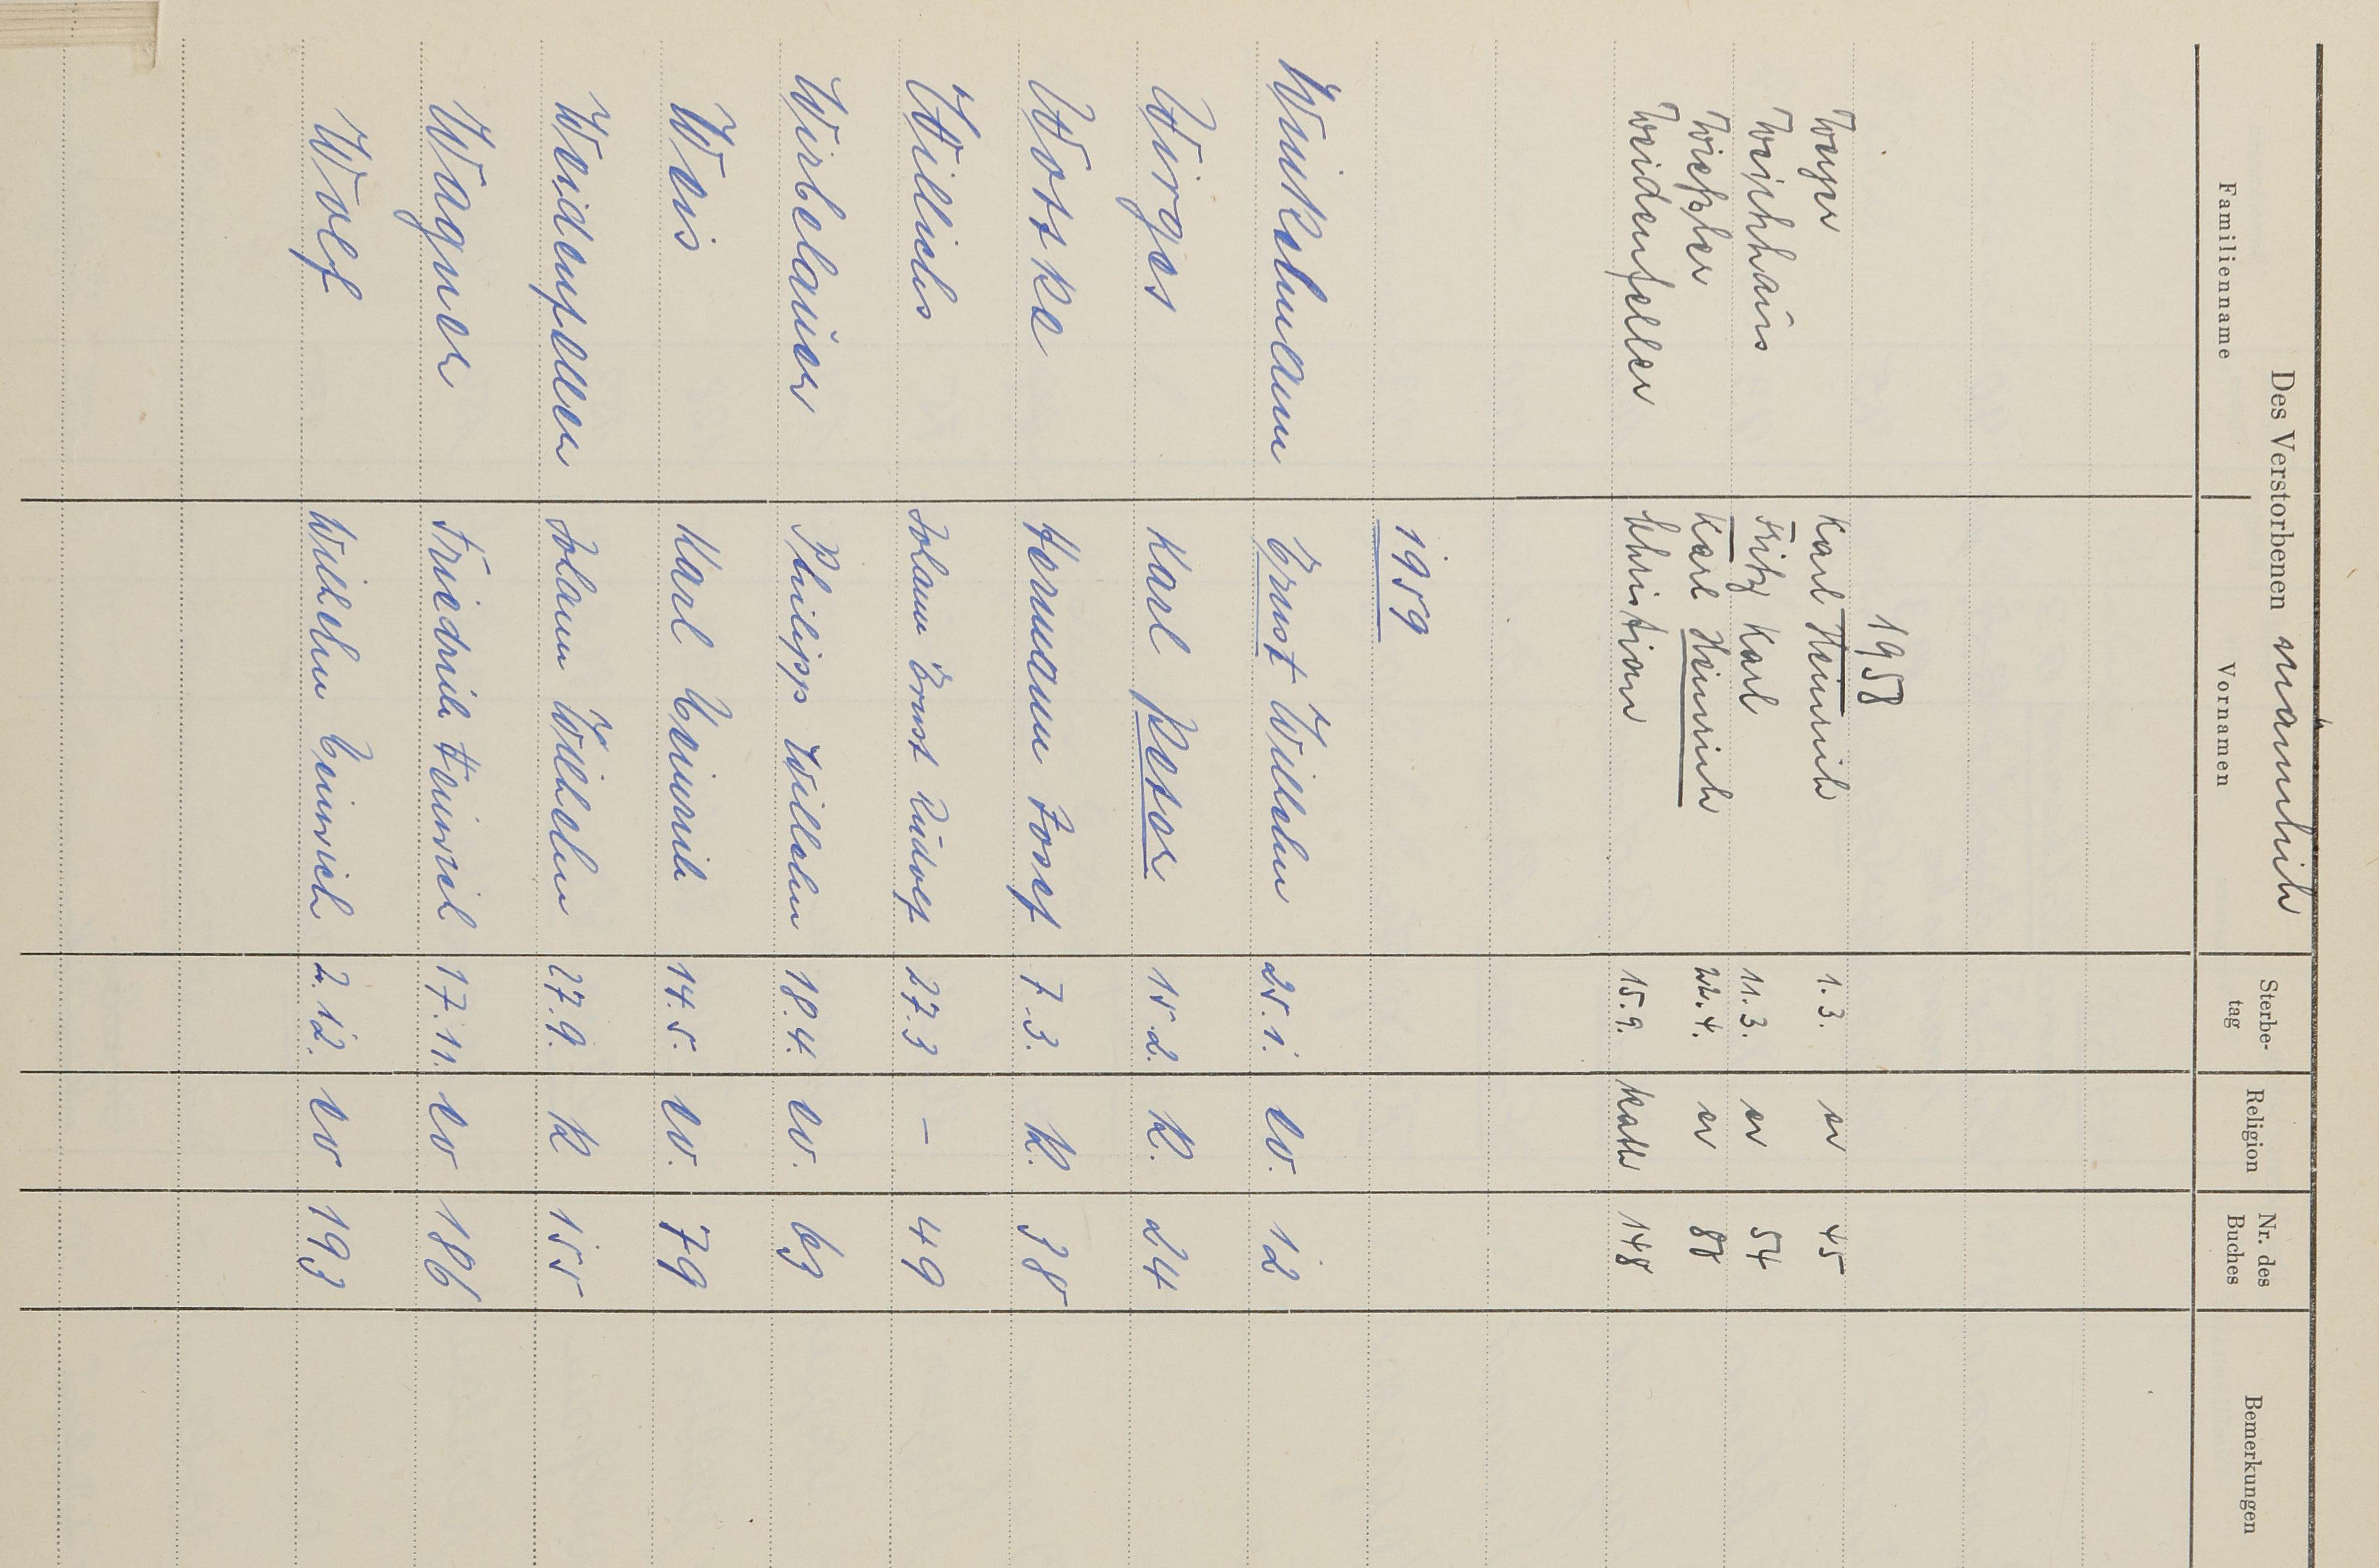 Des Verstorbenen männlich
Familienname Vornamen Sterbe- tag Religion Nr. des Buches Bemerkungen
1958
Karl Heinrich 1.3. ev 45
Weishhaus Fritz Karl 11.3. ev 54
Karl Heinrich 22.4. ev 88
Weidenfeller Christian 15.9. kath 148
1959
Winkelmann Ernst Wilhelm 25.1. ev. 12
Wirges Karl Peter 15.2. k. 24
Wotzke Hermann Josef 7.3. k. 38
Willichs Johann Ernst Rudolf 27.3 – 49
Wirbelauer Philipp Wilhelm 18.4. ev. 63
Weis Karl Heinrich 14.5. ev. 79
Weidenfeller Johann Wilhelm 27.9. k 155
Wagner Friedrich Heinrich 17.11. ev 186
Wolf Wilhelm Heinrich 2.12. ev 193